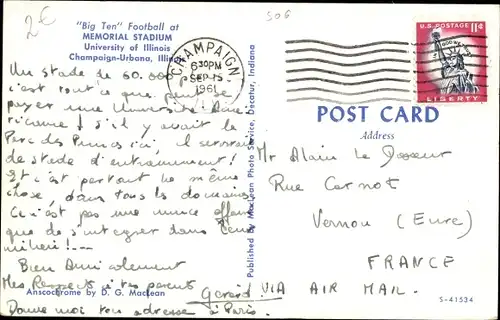 2€
506
"Big Ten" Football at
MEMORIAL STADIUM
University of Illinois
Champaign-Urbana, Illinois
CHAMPAIGN
6 30PM
SEP 15
1961
U.S. POSTAGE 11¢
IN GOD WE TRUST
LIBERTY
POST CARD
Address
Un stade de 60.000
c'est tout ce que peut se
payer une Université Amé
ricaine! S'il y avait le
Parc des Princes ici, il servirait
de stade d'entrainement!
Et c'est partout la même
chose, dans tous les domaines
Ce n'est pas une mince affaire
que de s'integrer dans leur
milieu! ---
Bien Amicalement
Mes Respects à tes parents
Gérard
Donne moi ton adresse à Paris.
Anscochrome by D. G. MacLean
Published by MacLean Photo Service, Decatur, Indiana
Mr Alain Le
Rue Carnot
Vernon (Eure)
FRANCE
VIA AIR MAIL.
S-41534